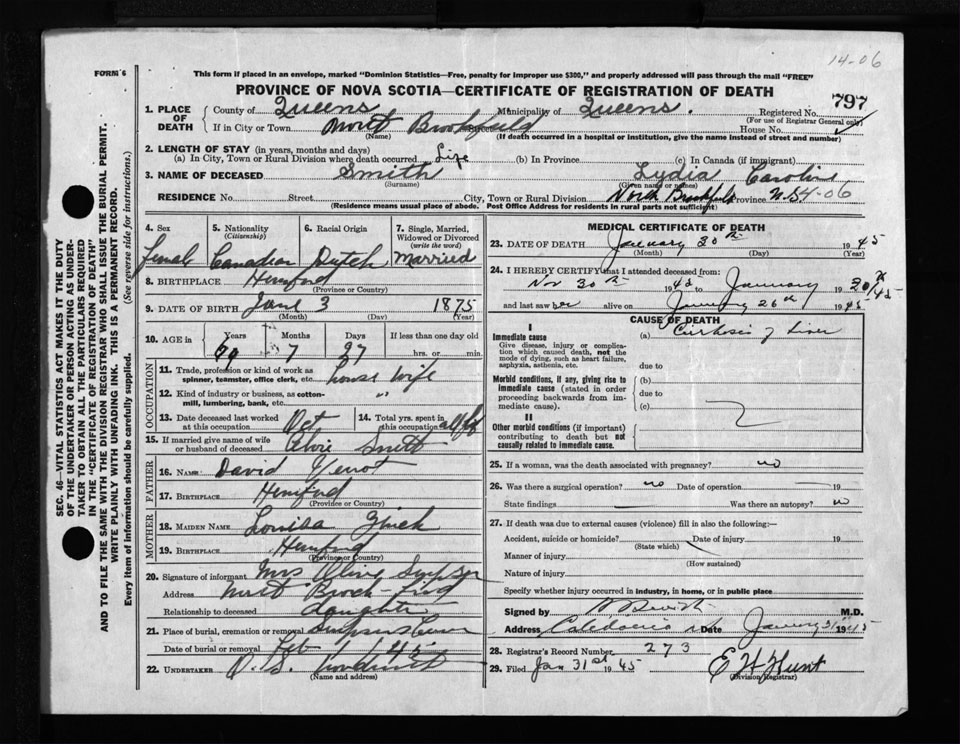 14-06
FORM 6
This form if placed in an envelope, marked "Dominion Statistics—Free, penalty for improper use $300," and properly addressed will pass through the mail "FREE"
PROVINCE OF NOVA SCOTIA—CERTIFICATE OF REGISTRATION OF DEATH
797
1. PLACE OF DEATH
County of Queens Municipality of Queens. Registered No.
(For use of Registrar General only)
If in City or Town North Brookfield Street House No.
(Name) (If death occurred in a hospital or institution, give the name instead of street and number)
2. LENGTH OF STAY (in years, months and days)
(a) In City, Town or Rural Division where death occurred Life (b) In Province (c) In Canada (if immigrant)
3. NAME OF DECEASED Smith Lydia Caroline
(Surname) (Given name or names)
RESIDENCE No. Street City, Town or Rural Division North Brookfield Province N.S. 4-06
(Residence means usual place of abode. Post Office Address for residents in rural parts not sufficient)
4. Sex Female
5. Nationality (Citizenship) Canadian
6. Racial Origin Dutch
7. Single, Married, Widowed or Divorced (write the word) Married
8. BIRTHPLACE Hemford
(Province or Country)
9. DATE OF BIRTH June 3 1875
(Month) (Day) (Year)
10. AGE in Years Months Days If less than one day old
69 7 27 hrs. or min.
OCCUPATION
11. Trade, profession or kind of work as spinner, teamster, office clerk, etc. house wife
12. Kind of industry or business, as cotton-mill, lumbering, bank, etc. "
13. Date deceased last worked at this occupation Oct.
14. Total yrs. spent in this occupation all life
15. If married give name of wife or husband of deceased Smith
FATHER
16. NAME David
17. BIRTHPLACE Hemford
(Province or Country)
MOTHER
18. MAIDEN NAME Louisa
19. BIRTHPLACE Hemford
(Province or Country)
20. Signature of informant Mrs Olive Simpson
Address North Brookfield
Relationship to deceased daughter
21. Place of burial, cremation or removal
Date of burial or removal Feb 1 45
22. UNDERTAKER
(Name and address)
MEDICAL CERTIFICATE OF DEATH
23. DATE OF DEATH January 30th 1945
(Month) (Day)
24. I HEREBY CERTIFY that I attended deceased from:
Nov 30th 19 January 30th 1945
and last saw her alive on January 26th 1945
CAUSE OF DEATH
I
Immediate cause
Give disease, injury or complication which caused death, not the mode of dying, such as heart failure, asphyxia, asthenia, etc.
(a) Cirrhosis of Liver
due to
Morbid conditions, if any, giving rise to immediate cause (stated in order proceeding backwards from immediate cause).
(b)
due to
(c)
II
Other morbid conditions (if important) contributing to death but not causally related to immediate cause.
25. If a woman, was the death associated with pregnancy? no
26. Was there a surgical operation? no Date of operation 19
State findings Was there an autopsy? no
27. If death was due to external causes (violence) fill in also the following:—
Accident, suicide or homicide? Date of injury 19
(State which)
Manner of injury
(How sustained)
Nature of injury
Specify whether injury occurred in industry, in home, or in public place
Signed by M.D.
Address Caledonia Date January 31 1945
28. Registrar's Record Number 273
29. Filed Jan 31st 1945 E H Hunt
(Division Registrar)
SEC. 46—VITAL STATISTICS ACT MAKES IT THE DUTY OF THE UNDERTAKER OR PERSON ACTING AS UNDERTAKER TO OBTAIN ALL THE PARTICULARS REQUIRED IN THE "CERTIFICATE OF REGISTRATION OF DEATH" AND TO FILE THE SAME WITH THE DIVISION REGISTRAR WHO SHALL ISSUE THE BURIAL PERMIT.
WRITE PLAINLY WITH UNFADING INK. THIS IS A PERMANENT RECORD.
Every item of information should be carefully supplied. (See reverse side for instructions.)